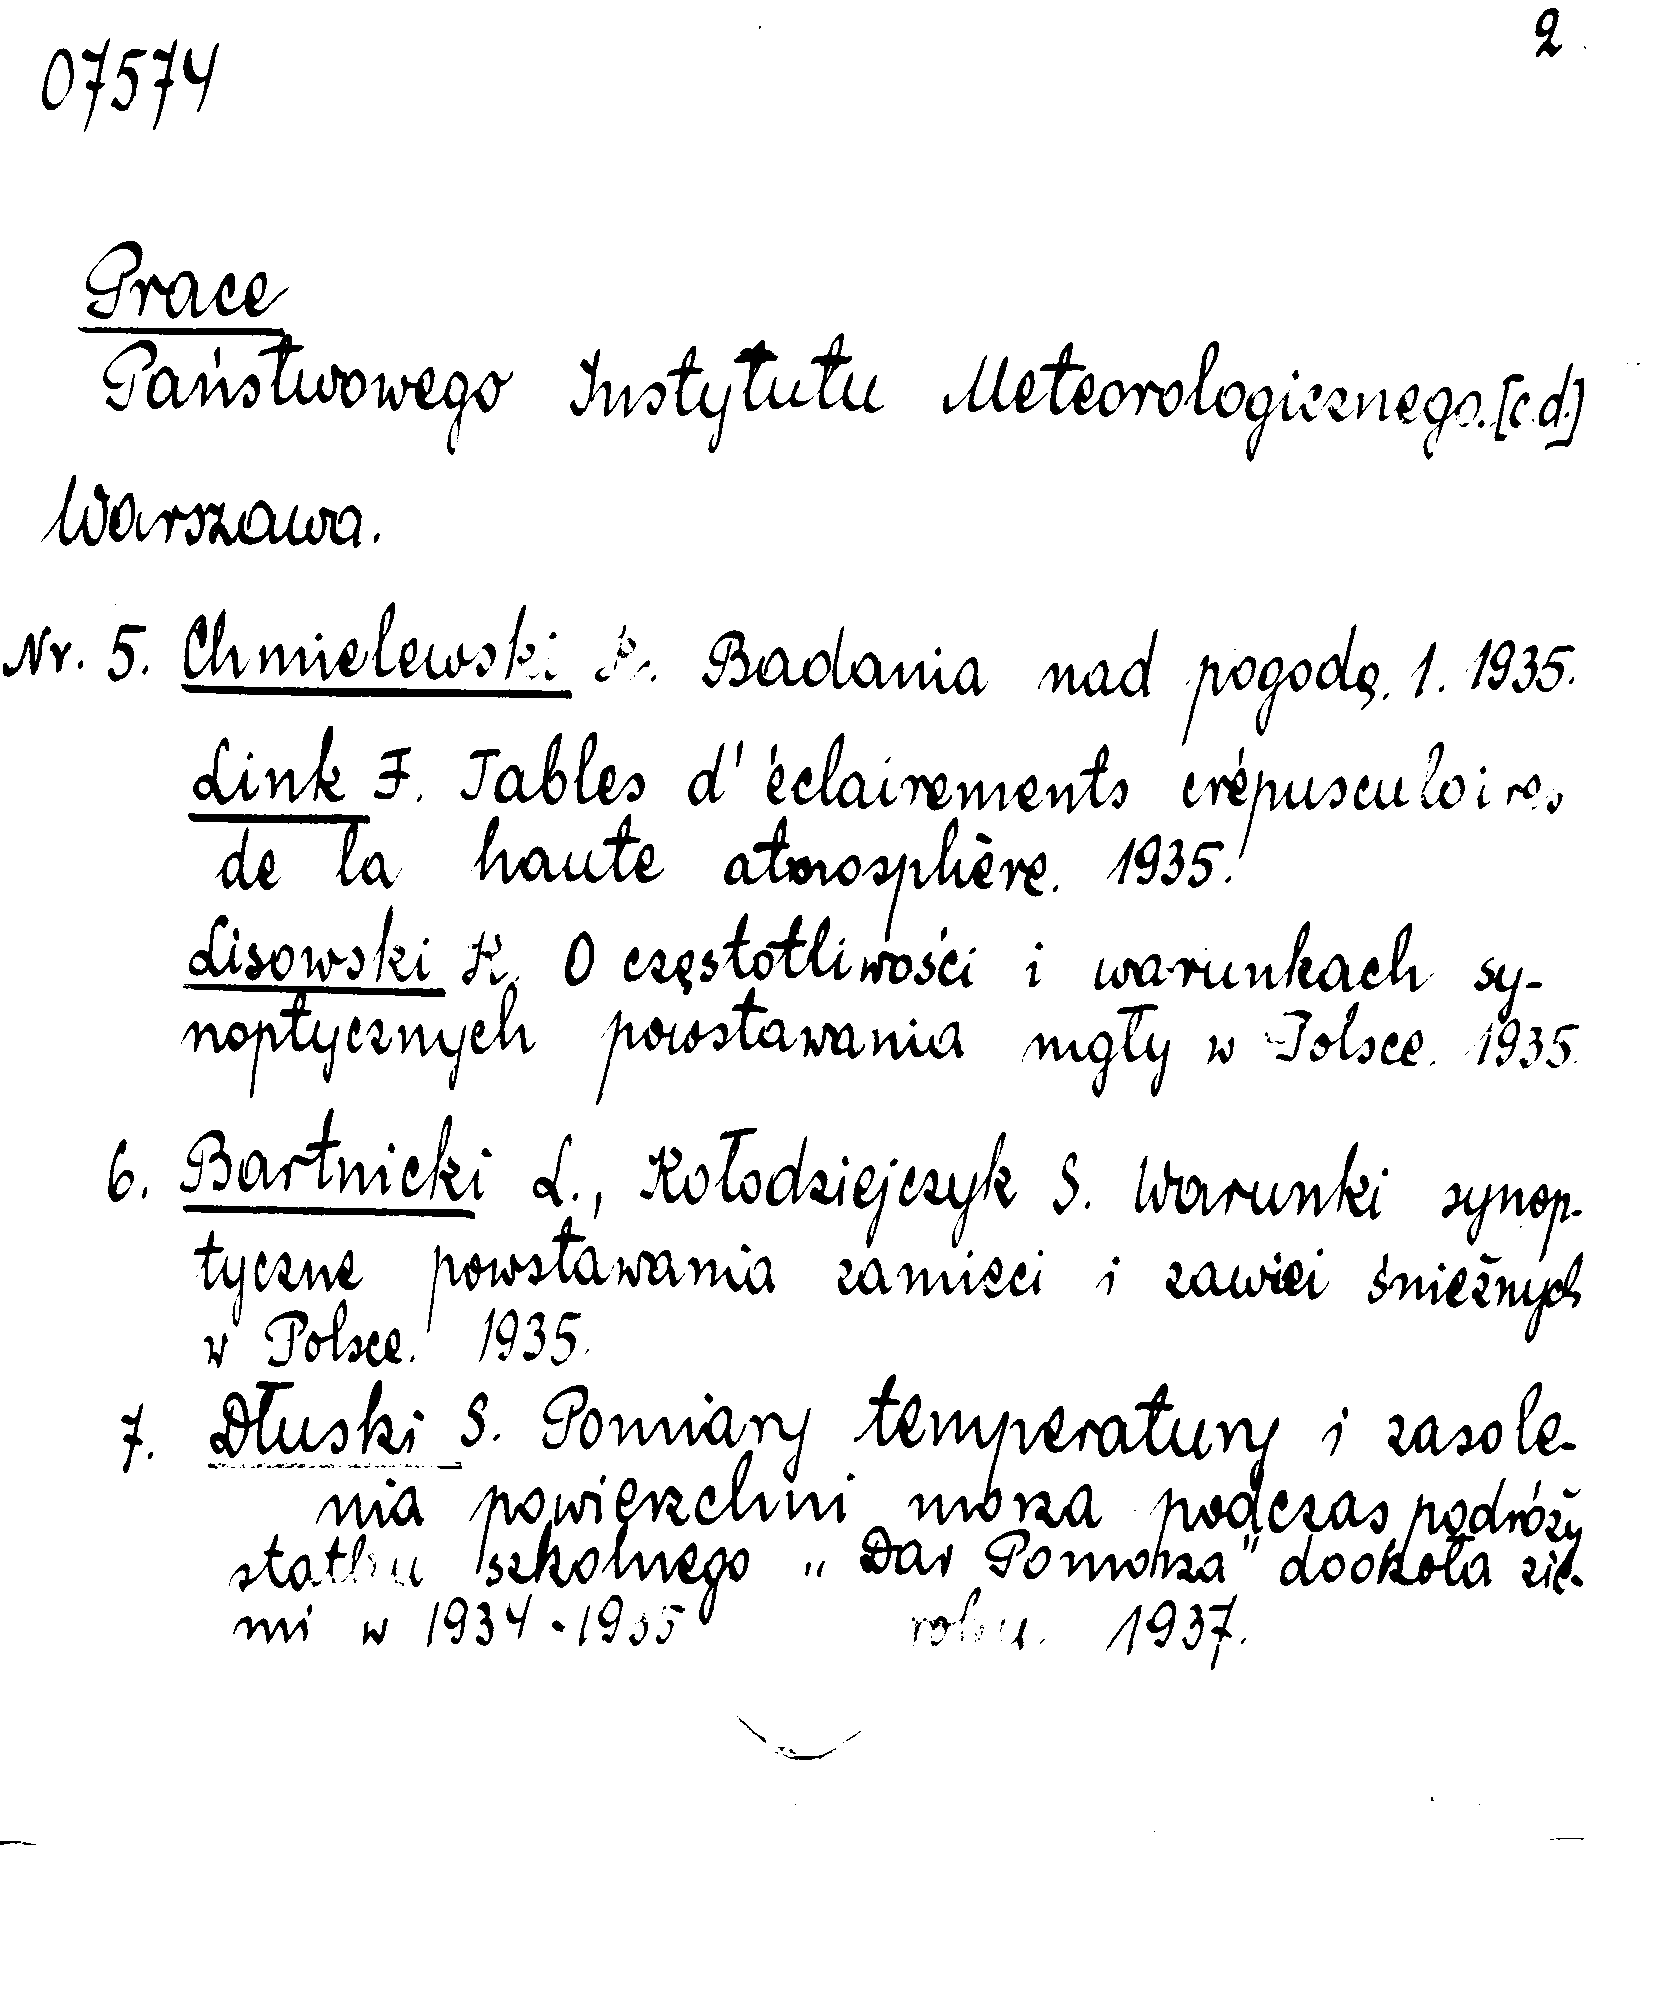 2
07574
Prace
Państwowego Instytutu Meteorologicznego. [c.d.]
Warszawa.
Nr. 5. Chmielewski Badania nad pogodą. 1. 1935.
Link F. Tables d'éclairements crépusculaires
de la haute atmosphère. 1935.
Lisowski K. O częstotliwości i warunkach sy-
noptycznych powstawania mgły w Polsce. 1935.
6. Bartnicki L., Kołodziejczyk S. Warunki synop-
tyczne powstawania zamieci i zawiei śnieżnych
w Polsce. 1935.
7. Dłuski S. Pomiary temperatury i zasole-
nia powierzchni morza podczas podróży
statku szkolnego „Dar Pomorza" dookoła zie-
mi w 1934-1935 roku. 1937.